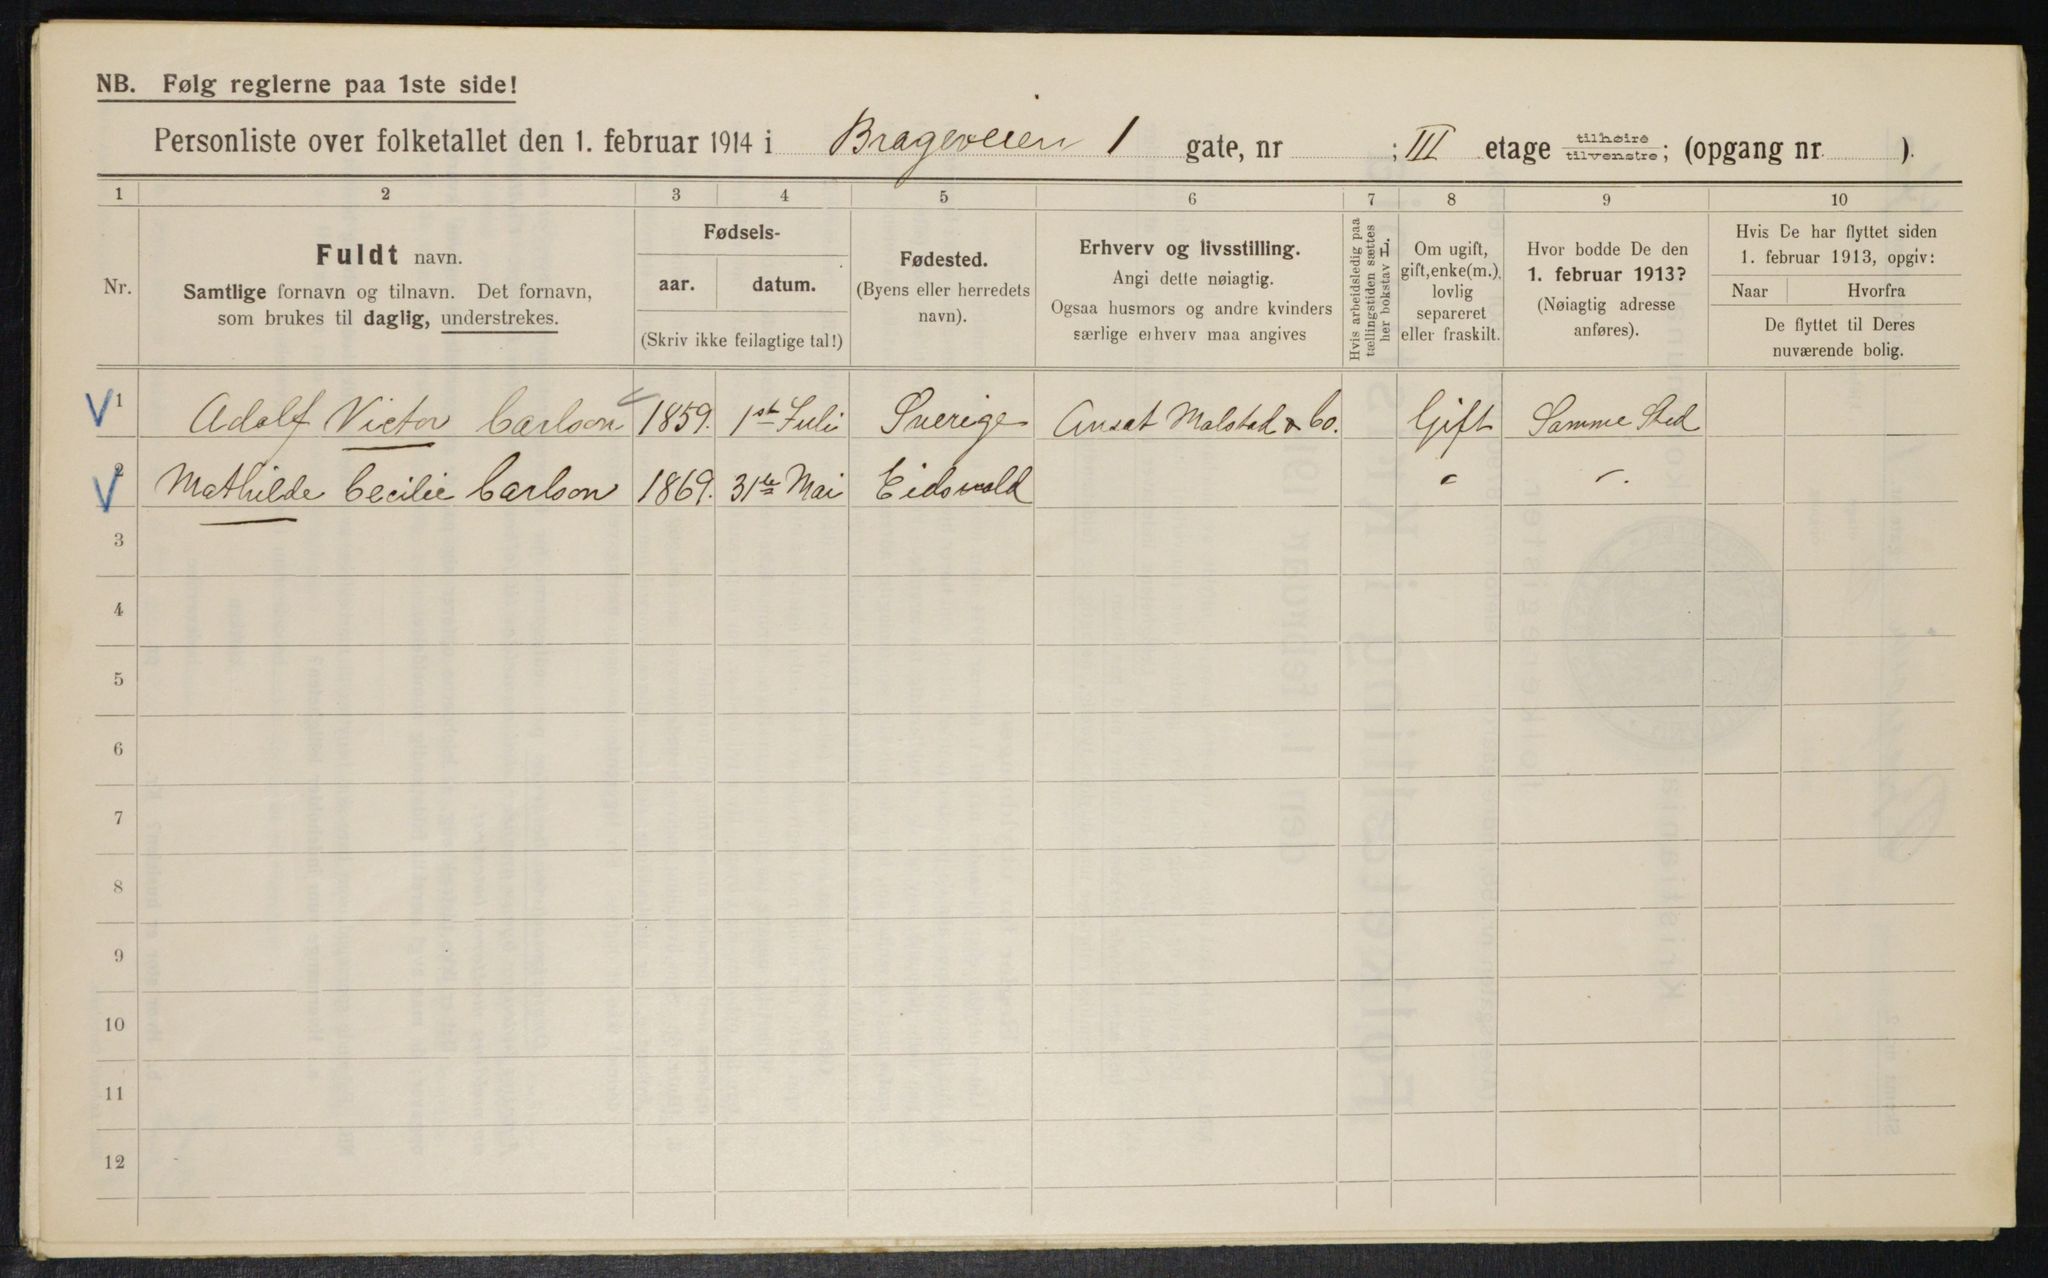 NB. Følg reglerne paa 1ste side!
Personliste over folketallet den 1. februar 1914 i Brageveien 1 gate, nr ; III etage tilhøire tilvenstre; (opgang nr. ).
1 2 3 4 5 6 7 8 9 10
Nr.
Fuldt navn.
Samtlige fornavn og tilnavn. Det fornavn,
som brukes til daglig, understrekes.
Fødsels-
aar. datum.
(Skriv ikke feilagtige tal!)
Fødested.
(Byens eller herredets
navn).
Erhverv og livsstilling.
Angi dette nøiagtig.
Ogsaa husmors og andre kvinders
særlige erhverv maa angives
Hvis arbeidsledig paa
tællingstiden sættes
her bokstav L.
Om ugift,
gift, enke(m.),
lovlig
separeret
eller fraskilt.
Hvor bodde De den
1. februar 1913?
(Nøiagtig adresse
anføres).
Hvis De har flyttet siden
1. februar 1913, opgiv:
Naar Hvorfra
De flyttet til Deres
nuværende bolig.
1 Adolf Victor Carlson 1859. 1st Juli Sverige Ansat Malstad & Co. Gift Samme Sted
2 Mathilde Cecilie Carlson 1869. 31te Mai Eidsvold " "
3
4
5
6
7
8
9
10
11
12